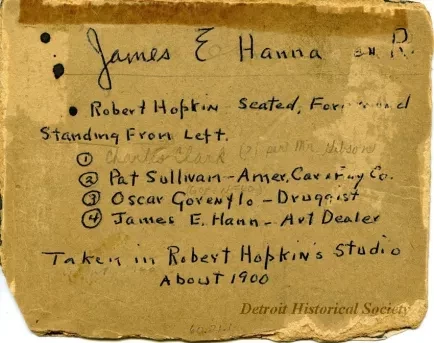 James E Hanna on R.
Robert Hopkin Seated, Foreground
Standing From Left.
① Charles Clark (?) per Mr. Gibson
② Pat Sullivan-Amer. Car & Fdy Co.
③ Oscar Gorenflo-Druggist
④ James E. Hann-Art Dealer
Taken in Robert Hopkin's Studio
About 1900
Detroit Historical Society